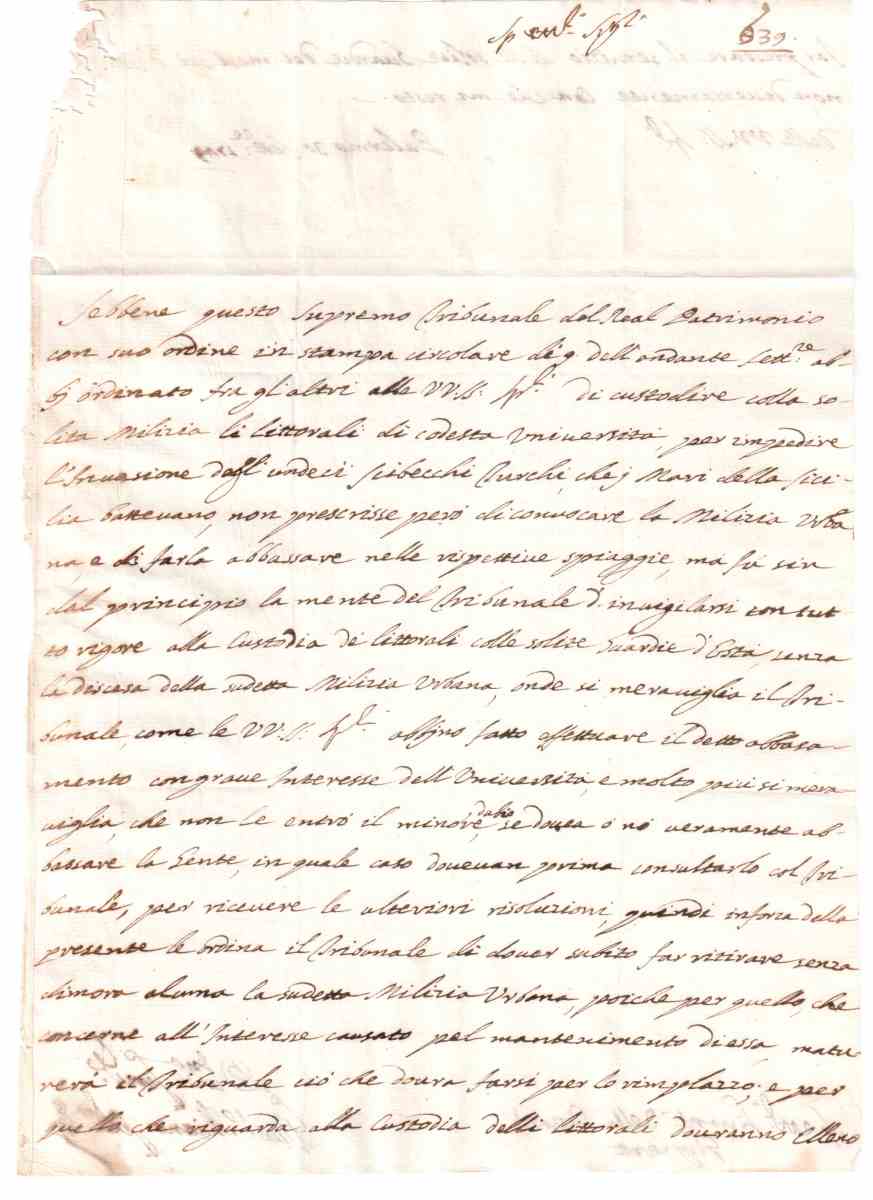 639.
Sebbene questo Supremo Tribunale del Real Patrimonio
con suo ordine in stampa circolare de' 9 dell'andante Sett.re ab-
bj ordinato fra gl'altri alle VV.SS. Sp.li di custodire colla so-
lita Milizia li littorali di codesta Università, per impedire
l'Invasione degl'undeci Sciabecchi Turchi, che j Mari della Sici-
lia battevano, non prescrisse però di convocare la Milizia Urba
na, e di farla abbassare nelle rispettive spiaggie, ma fù sin
dal principio la mente del Tribunale d'invigilarsi con tut
to rigore alla Custodia de' littorali colle solite Guardie d'Està, senza
la discesa della sudetta Milizia Urbana, onde si meraviglia il Tri-
bunale, come le VV.SS. Sp.li abbino fatto effettuare il detto abbasa-
mento con grave Interesse dell'Università, e molto più si mera
viglia, che non le entrò il minore dubio, se dovea ò nò veramente ab-
bassare la Gente, in quale caso dovevan prima consultarlo col Tri-
bunale, per ricevere le ulteriori risoluzioni, quindi in forza della
presente le ordina il Tribunale di dover subito far ritirare senza
dimora alcuna la sudetta Milizia Urbana, poiche per quello, che
concerne all'Interesse causato pel mantenimento di essa, matu-
rerà il Tribunale ciò che dovrà farsi per lo rimplazzo, e per
quello che riguarda alla Custodia delli littorali dovranno Elleno